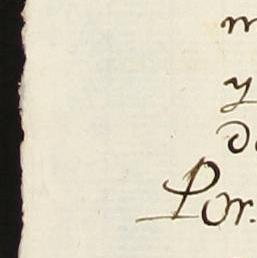 m
y
de
Por.